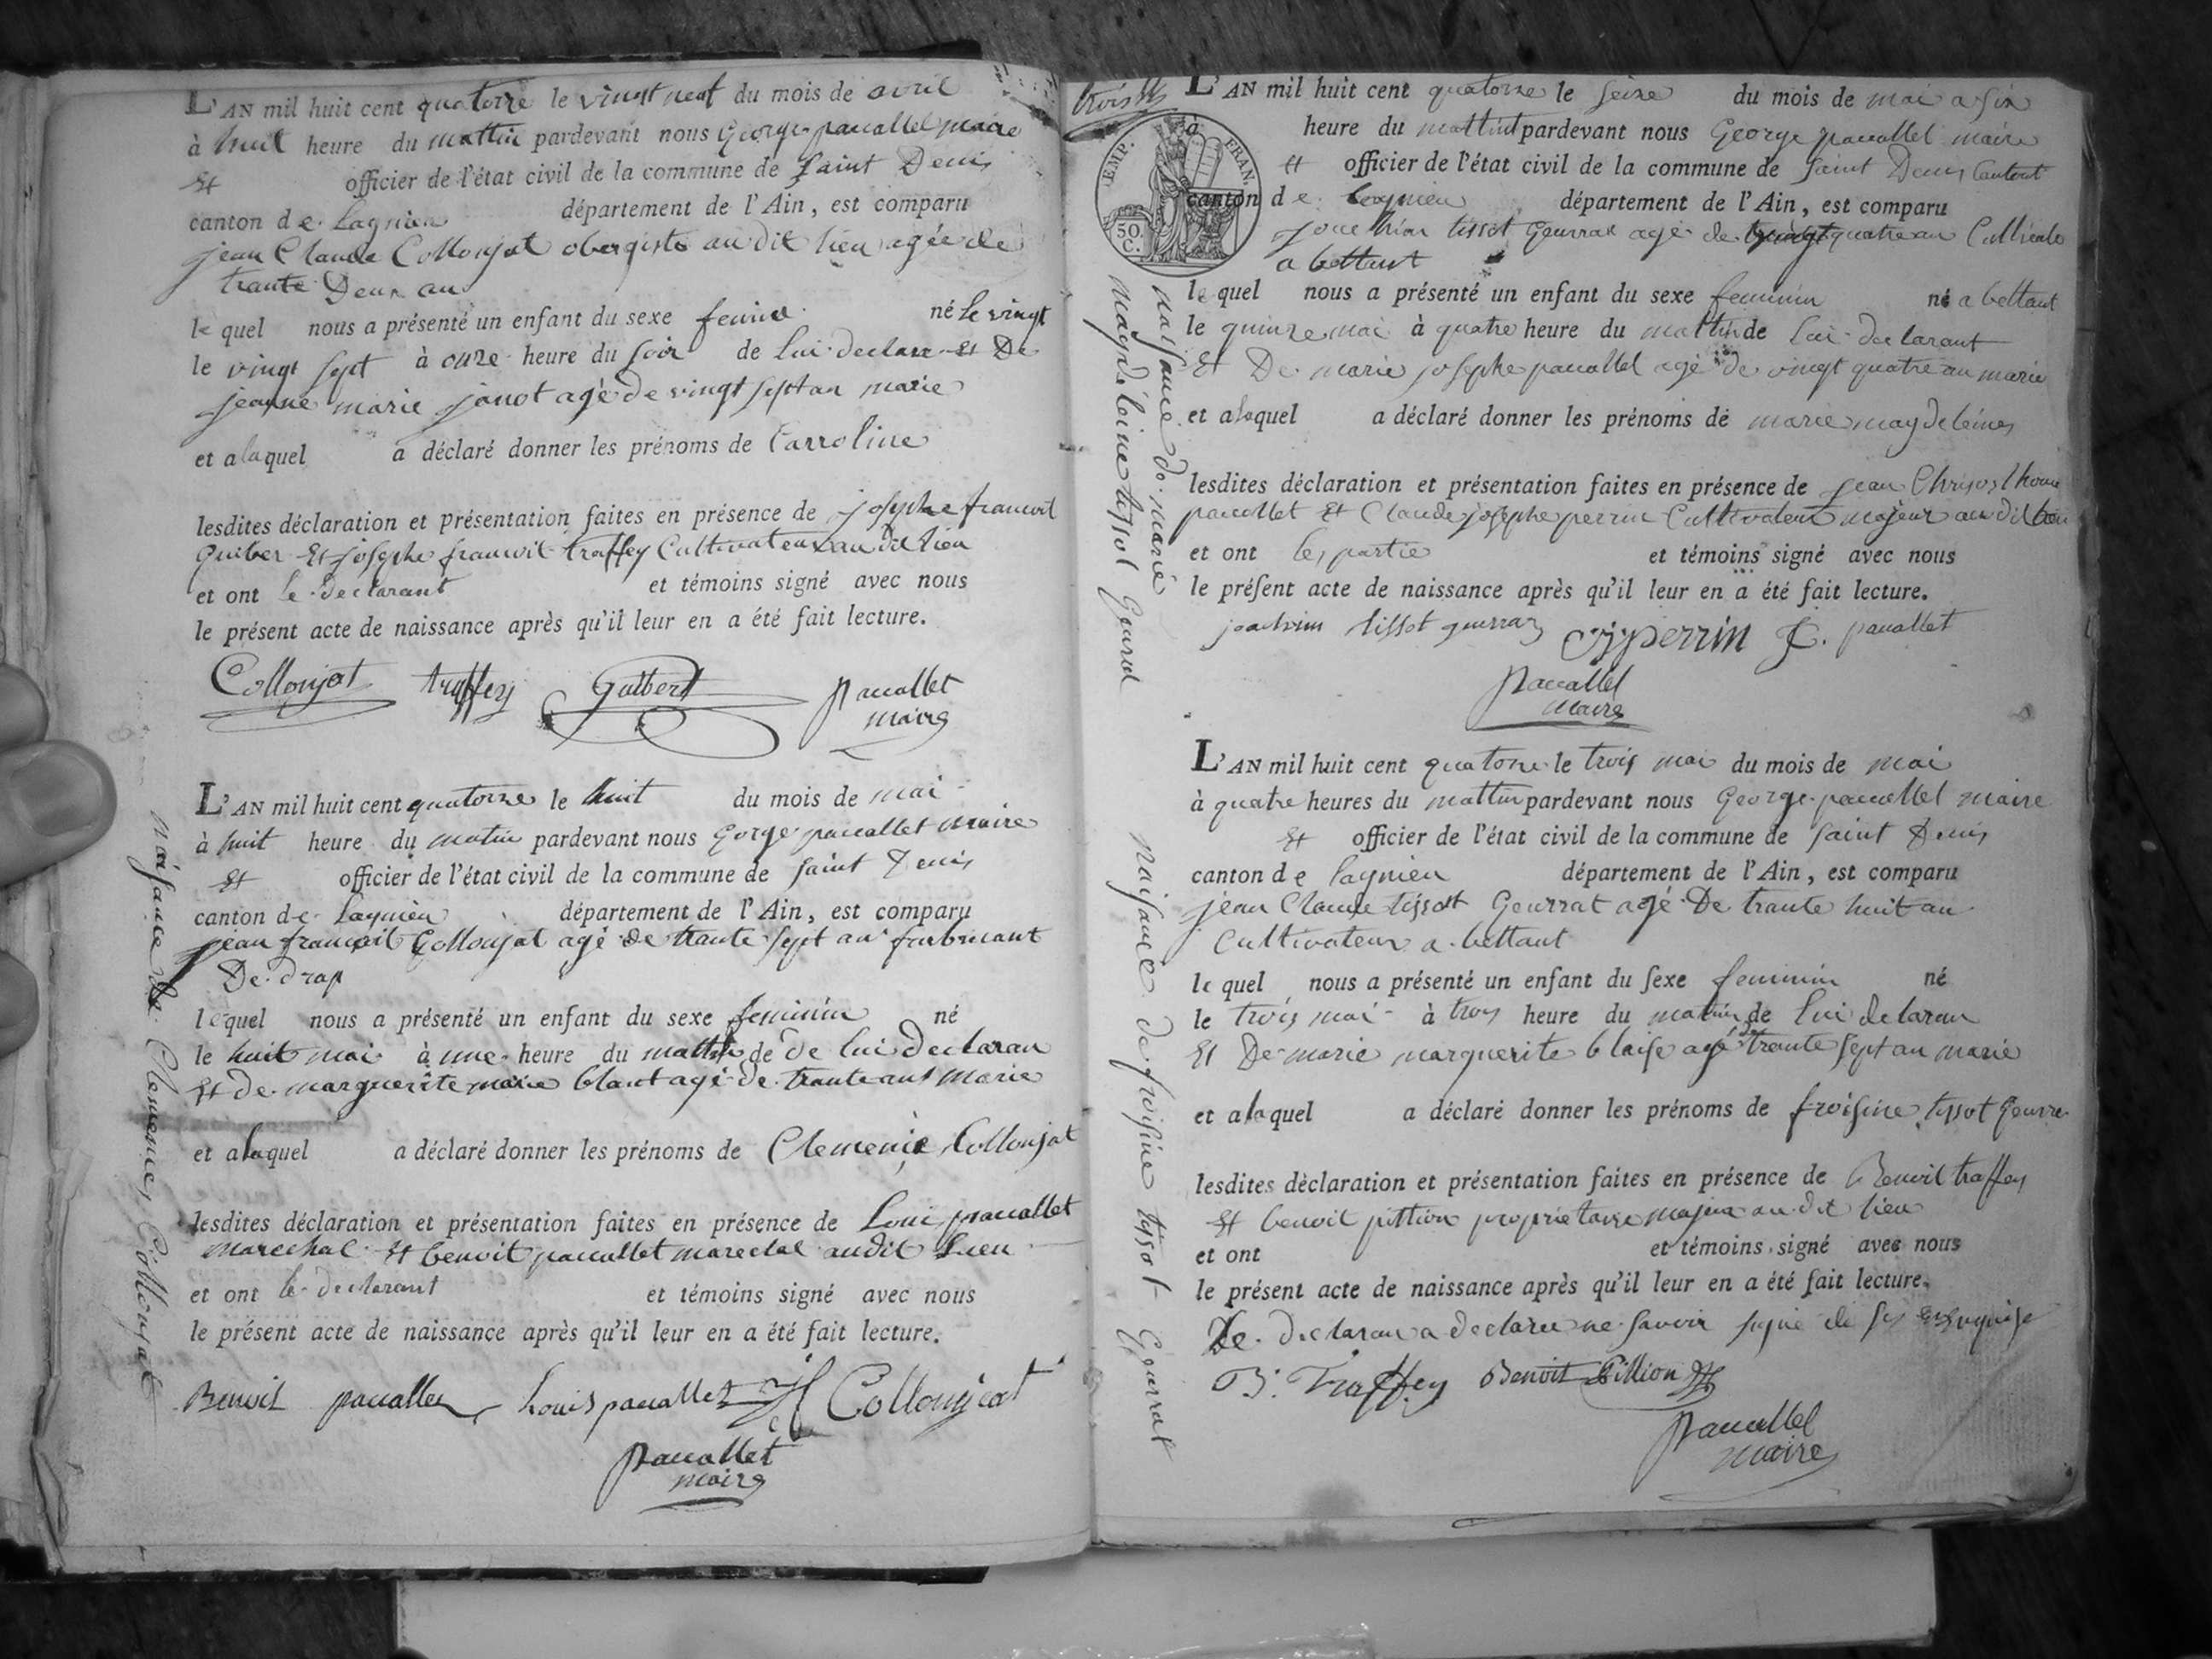 L'AN mil huit cent quatorze le vingt neuf du mois de avril
à huit heure du mattin pardevant nous George paucallet maire
Et officier de l'état civil de la commune de Saint Denis
canton de Lagnieu département de l'Ain, est comparu
jean Claude Collonjat obergiste au dit lieu agée de
trante Deux an
le quel nous a présenté un enfant du sexe né le vingt
le vingt sept à onze heure du soir de lui declare Et De
jeanne marie janot agé de vingt sept an marie
et a laquel a déclaré donner les prénoms de Carroline
lesdites déclaration et présentation faites en présence de josephe francoit
Guiber Et josephe francoit traffey Cultivateur au dit lieu
et ont le declarant et témoins signé avec nous
le présent acte de naissance après qu'il leur en a été fait lecture.
Collonjat traffey Guibert paucallet
maire
L'AN mil huit cent quatorze le huit du mois de mai
à huit heure du matin pardevant nous Gorge paucallet maire
Et officier de l'état civil de la commune de Saint Denis
canton de Lagnieu département de l'Ain, est comparu
jean francoit Collonjat agé de trante sept an fabricant
De drap
lequel nous a présenté un enfant du sexe feminin né
le huit mai à une heure du mattin de De lui declaran
Et de marguerite marie blant agé de trante ans marie
et a laquel a déclaré donner les prénoms de Clemence Collonjat
lesdites déclaration et présentation faites en présence de Loui paucallet
marechal Et benoit paucallet marechal audit Lieu
et ont le declarant et témoins signé avec nous
le présent acte de naissance après qu'il leur en a été fait lecture.
Benoit paucallet Louis paucallet Collonjeat
paucallet
maire
naisance de Clemence Collonjat
trois
EMP. FRAN.
50. C.
L'AN mil huit cent quatorze le seize du mois de mai a six
à heure du mattint pardevant nous George paucallet maire
Et officier de l'état civil de la commune de Saint Denis Cantont
canton de Lagnieu département de l'Ain, est comparu
tissot Geurrat agé de vingt quatre an
a bettant
le quel nous a présenté un enfant du sexe feminin né a bettant
le quinze mai à quatre heure du mattin de lui declarant
Et De marie josephe paucallet agé de vingt quatre an marie
et a laquel a déclaré donner les prénoms de marie maydeleines
lesdites déclaration et présentation faites en présence de jean
paucollet Et Claude josephe perrin Cultivateur majeur au dit lieu
et ont les partie et témoins signé avec nous
le présent acte de naissance après qu'il leur en a été fait lecture.
joachim tissot guerraz CJ perrin J C. paucallet
paucallet
maire
naisance de marie
maydeleine tissot Geurrat
L'AN mil huit cent quatorze le trois mai du mois de mai
à quatre heures du mattin pardevant nous George paucallet maire
Et officier de l'état civil de la commune de Saint Denis
canton de Lagnieu département de l'Ain, est comparu
jean Claude tissot Geurrat agé De trante huit an
Cultivateur a bettant
le quel nous a présenté un enfant du sexe feminin né
le trois mai à trois heure du matin de lui declaran
Et De marie marguerite blaise agé de trante sept an marie
et a laquel a déclaré donner les prénoms de froisine tissot Geurra
lesdites déclaration et présentation faites en présence de Benoit traffey
Et benoit pittion proprietaire majeur au dit lieu
et ont et témoins signé avec nous
le présent acte de naissance après qu'il leur en a été fait lecture.
Le declaran a declare ne savoir signé de
B. Traffey Benoit Pittion
paucallet
maire
naisance de froisine tissot Geurrat